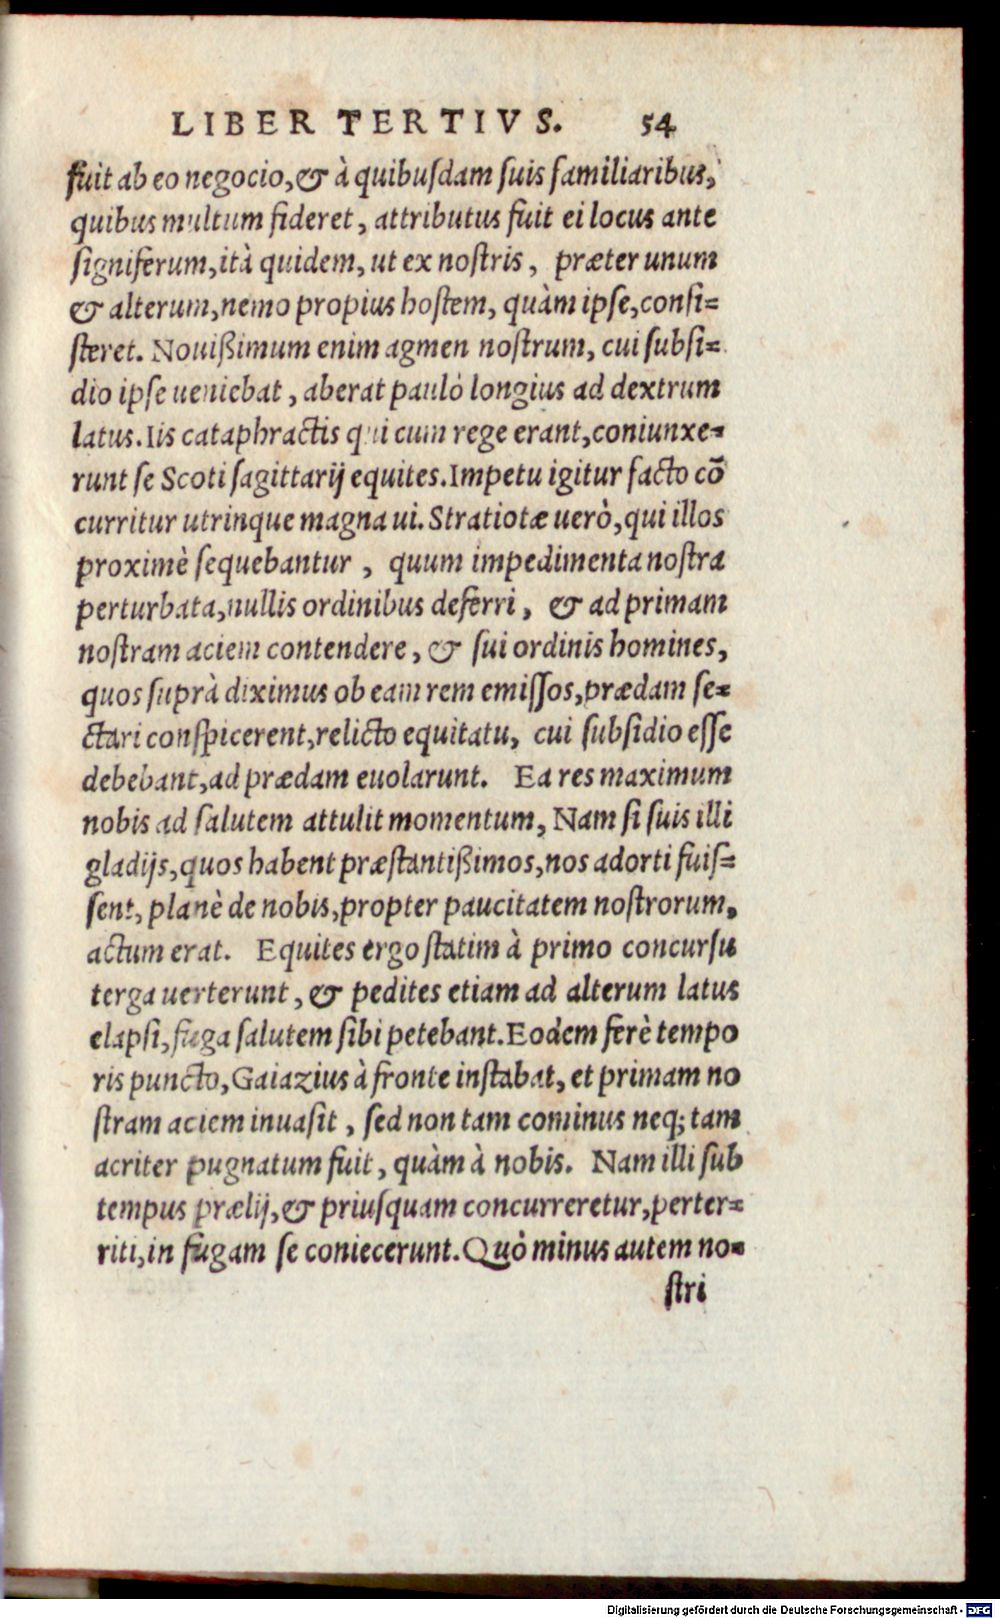 LIBER TERTIVS. 54
fuit ab eo negocio, & à quibuſdam ſuis familiaribus,
quibus multum fideret, attributus fuit ei locus ante
ſigniferum, ità quidem, ut ex noſtris, præter unum
& alterum, nemo propius hoſtem, quàm ipſe, conſi=
ſteret. Nouißimum enim agmen noſtrum, cui ſubſi=
dio ipſe ueniebat, aberat paulò longius ad dextrum
latus. Iis cataphractis qui cum rege erant, coniunxe=
runt ſe Scoti ſagittarij equites. Impetu igitur facto cō
curritur utrinque magna ui. Stratiotæ uerò, qui illos
proximè ſequebantur, quum impedimenta noſtra
perturbata, nullis ordinibus deferri, & ad primam
noſtram aciem contendere, & ſui ordinis homines,
quos ſuprà diximus ob eam rem emiſſos, prædam ſe=
ctari conſpicerent, relicto equitatu, cui ſubſidio eſſe
debebant, ad prædam euolarunt. Ea res maximum
nobis ad ſalutem attulit momentum, Nam ſi ſuis illi
gladijs, quos habent præſtantißimos, nos adorti fuiſ=
ſent, planè de nobis, propter paucitatem noſtrorum,
actum erat. Equites ergo ſtatim à primo concurſu
terga uerterunt, & pedites etiam ad alterum latus
elapſi, fuga ſalutem ſibi petebant. Eodem ferè tempo
ris puncto, Gaiazius à fronte inſtabat, et primam no
ſtram aciem inuaſit, ſed non tam cominus neq; tam
acriter pugnatum fuit, quàm à nobis. Nam illi ſub
tempus prælij, & priuſquam concurreretur, perter=
riti, in fugam ſe coniecerunt. Quò minus autem no=
ſtri
Digitalisierung gefördert durch die Deutsche Forschungsgemeinschaft - DFG